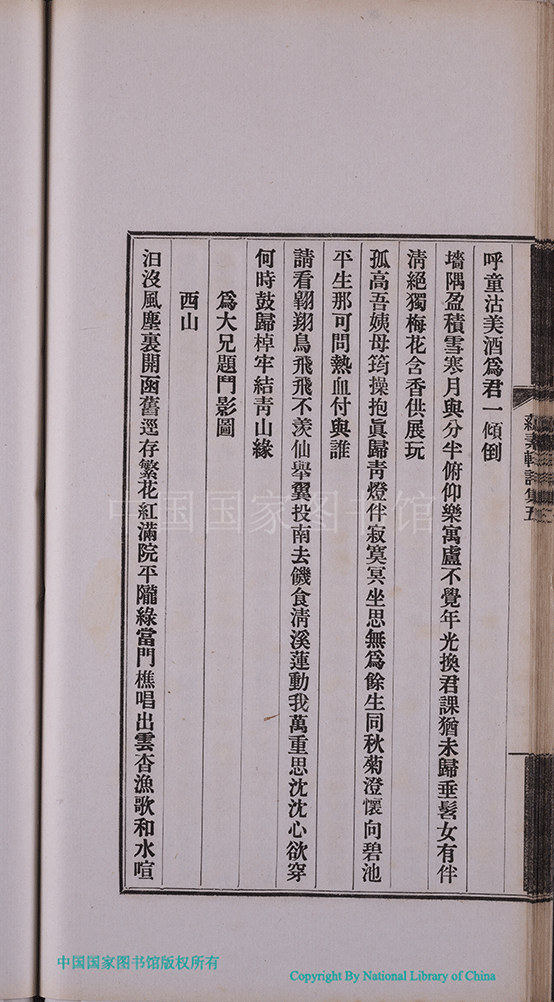 呼童沽美酒爲君一傾倒
墻隅盈積雪寒月與分半俯仰樂寓廬不覺年光換君課猶未歸垂髫女有伴
清絕獨梅花含香供展玩
孤高吾姨母筠操抱眞歸靑燈伴寂寞冥坐思無爲餘生同秋菊澄懷向碧池
平生那可問熱血付與誰
請看翱翔鳥飛飛不羨仙舉翼投南去饑食淸溪蓮動我萬重思沈沈心欲穿
何時鼓歸棹牢結靑山緣
爲大兄題鬥影圖
西山
汩沒風塵裏開函舊逕存繁花紅滿院平隴綠當門樵唱出雲杳漁歌和水喧
素軒詩集五
中国国家图书馆
中国国家图书馆版权所有
Copyright By National Library of China